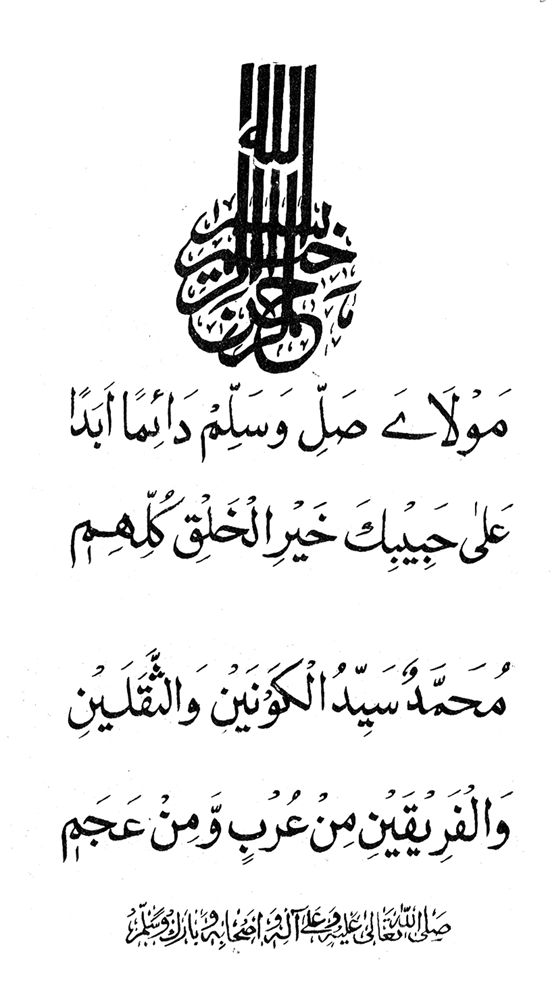 بسم الله الرحمن الرحيم
مَوْلَاىَ صَلِّ وَسَلِّمْ دَائِمًا اَبَدًا
عَلٰى حَبِيْبِكَ خَيْرِ الْخَلْقِ كُلِّهِمِ
مُحَمَّدٌ سَيِّدُ الْكَوْنَيْنِ وَالثَّقَلَيْنِ
وَالْفَرِيْقَيْنِ مِنْ عُرْبٍ وَّمِنْ عَجَمِ
صَلَّى اللهُ تَعَالٰى عَلَيْهِ وَعَلٰى آلِهٖ وَاَصْحَابِهٖ وَبَارَكَ وَسَلَّمَ